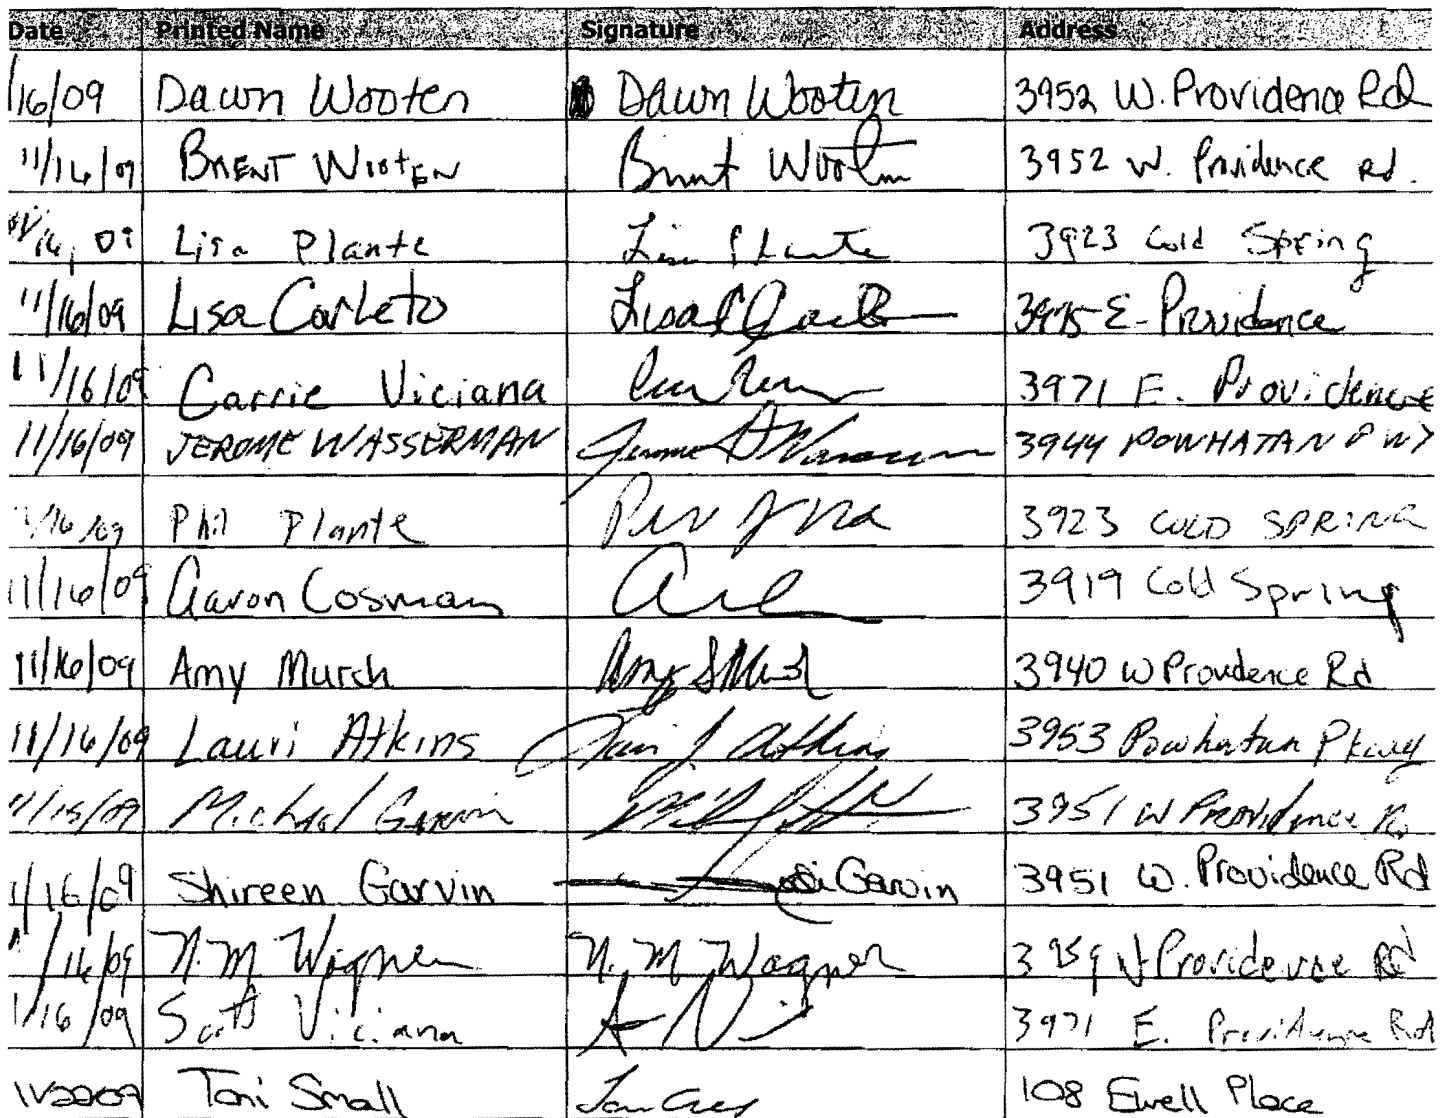 Date Printed Name Signature Address
/16/09 Dawn Wooten Dawn Wooten 3952 W. Providence Rd
11/16/09 BRENT WOOTEN Brent Wooten 3952 W. Providence Rd.
11/16, 09 Lisa Plante Lisa Plante 3923 Cold Spring
11/16/09 Lisa Carleto Lisa 3975 E. Providence
11/16/09 Carrie Viciana 3971 E. Providence
11/16/09 JEROME WASSERMAN Jerome 3944 POWHATAN PWY
11/16/09 Phil Plante 3923 COLD SPRING
11/16/09 Aaron Cosman 3919 Cold Spring
11/16/09 Amy Murch Amy S Murch 3940 W Providence Rd
11/16/09 Lauri Atkins Lauri J. Atkins 3953 Powhatan Pkwy
11/15/09 Michael Garvin 3951 W Providence Rd
1/16/09 Shireen Garvin Garvin 3951 W. Providence Rd
11/16/09 N. M. Wagner N. M. Wagner 3959 W Providence Rd
1/16/09 Scott Viciana 3971 E. Providence Rd
11/22/09 Toni Small 108 Ewell Place